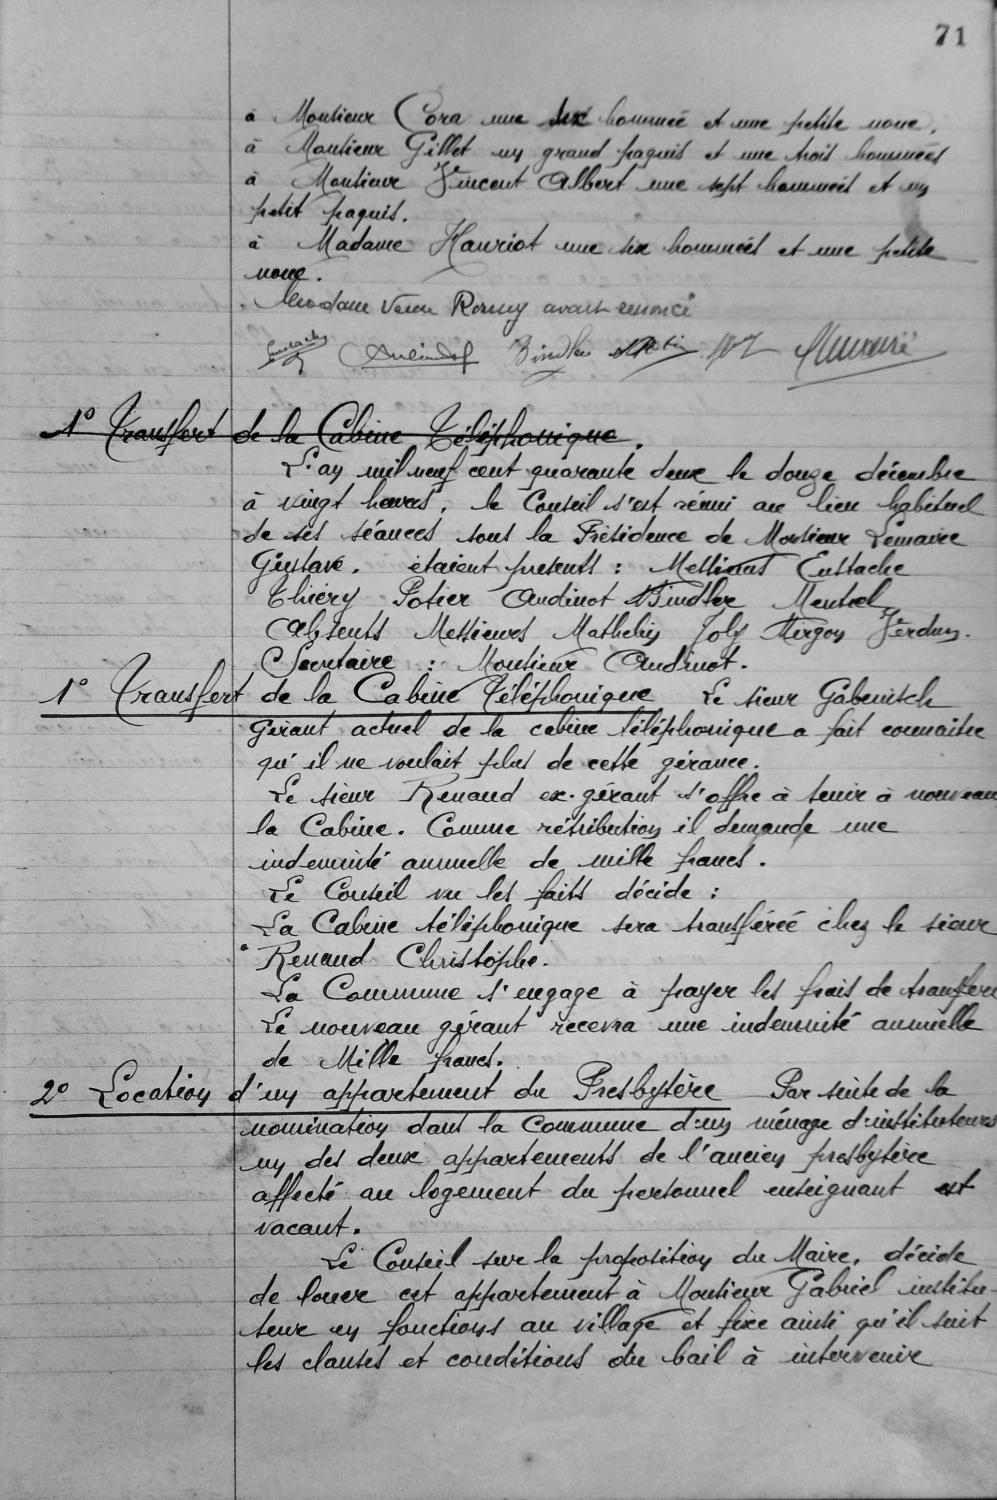 71
à Monsieur Cora une six hommée et une petite noue.
à Monsieur Gillet un grand paquis et une trois hommées
à Monsieur Vincent Albert une sept hommées et un
petit paquis.
à Madame Hauriot une six hommées et une petite
noue.
Madame Veuve Romuy ayant renoncé
Eustache Audinot Bindler Potier
1° Transfert de la Cabine Téléphonique.
L'an mil neuf cent quarante deux le douze décembre
à vingt heures, le Conseil s'est réuni au lieu habituel
de ses séances sous la Présidence de Monsieur Lemaire
Gustave. étaient présents : Messieurs Eustache
Thiéry Potier Audinot Bindler Mentrel,
Absents Messieurs Mathelin Joly Mergon Verdun.
Secrétaire : Monsieur Audinot.
1° Transfert de la Cabine Téléphonique Le sieur Gabenisch
Gérant actuel de la cabine téléphonique a fait connaître
qu'il ne voulait plus de cette gérance.
Le sieur Renaud ex-gérant s'offre à tenir à nouveau
la Cabine. Comme rétribution il demande une
indemnité annuelle de mille francs.
Le Conseil vu les faits décide :
La Cabine téléphonique sera transféréé chez le sieur
Renaud Christophe.
La Commune s'engage à payer les frais de transfert
Le nouveau gérant recevra une indemnité annuelle
de Mille francs.
2° Location d'un appartement du Presbytère Par suite de la
nomination dans la Commune d'un ménage d'instituteurs
un des deux appartements de l'ancien presbytère
affecté au logement du personnel enseignant est
vacant.
Le Conseil sur la proposition du Maire, décide
de louer cet appartement à Monsieur Gabriel institu-
teur en fonctions au village et fixe ainsi qu'il suit
les clauses et conditions du bail à intervenir